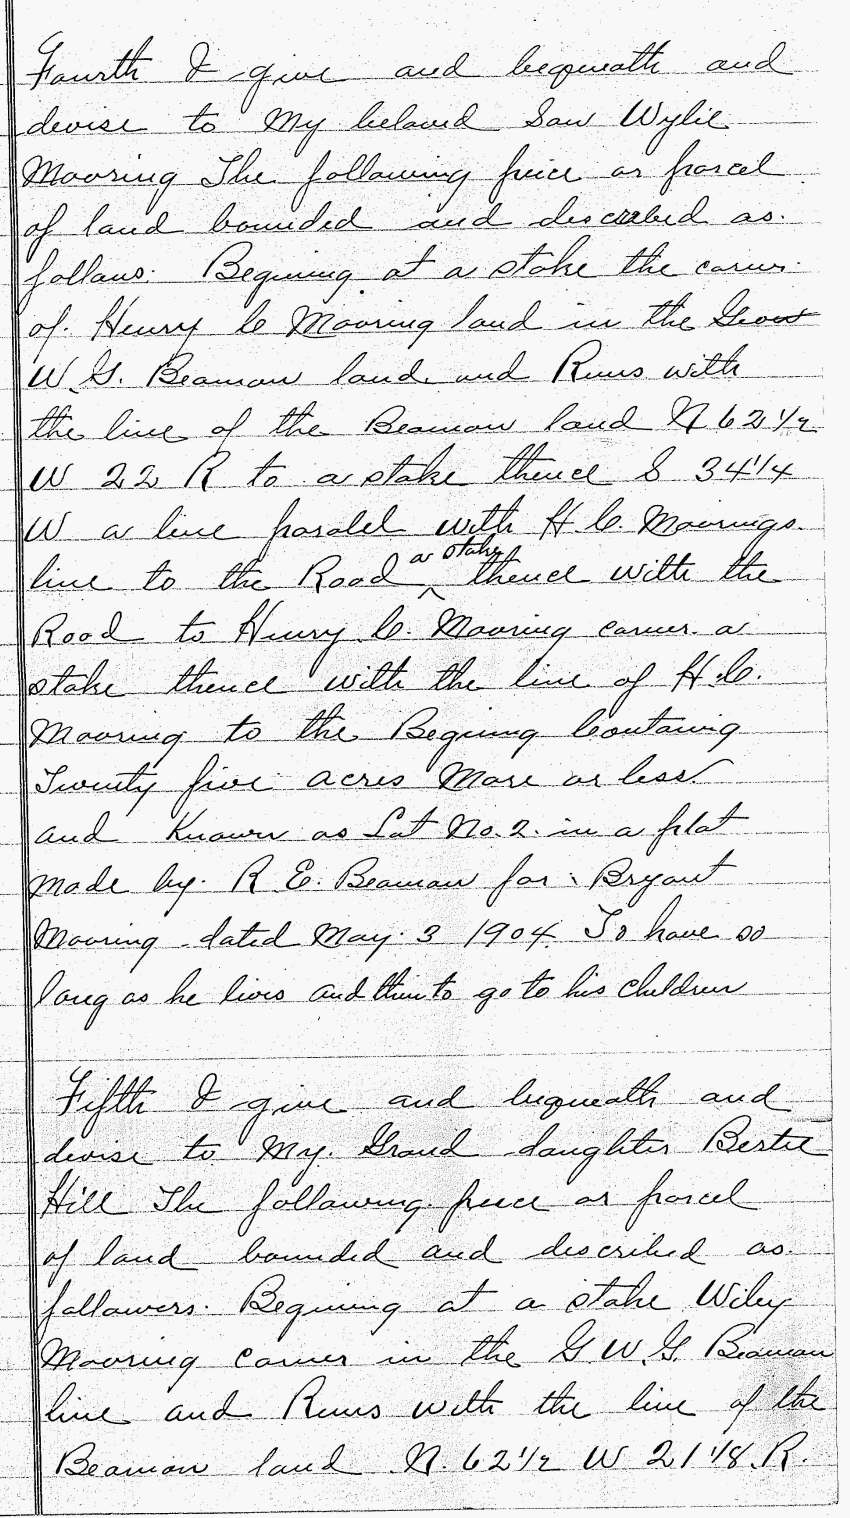 Fourth I give and bequeath and
devise to My beloved Son Wylie
Mooring The following peice or parcel
of land bounded and described as
follows. Begining at a stake the corner
of Henry C Mooring land in the
W.G. Beaman land and Runs with
the line of the Beaman land N 62 1/2
W 22 R to a stake thence S 34 1/4
W a line paralel with H.C. Moorings
line to the Road a stake thence with the
Road to Henry C. Mooring corner a
stake thence with the line of H.C.
Mooring to the Begining Containing
Twenty five acres More or less
and Known as Lot No. 2. in a plat
made by R E. Beaman for Bryant
Mooring dated May 3 1904. To have so
long as he lives and then to go to his children
Fifth I give and bequeath and
devise to My Grand daughter Bertie
Hill The following peece or parcel
of land bounded and described as
followers. Begining at a stake Wiley
Mooring corner in the G W.G. Beaman
line and Runs with the line of the
Beaman land N. 62 1/2 W 21 1/8 R.